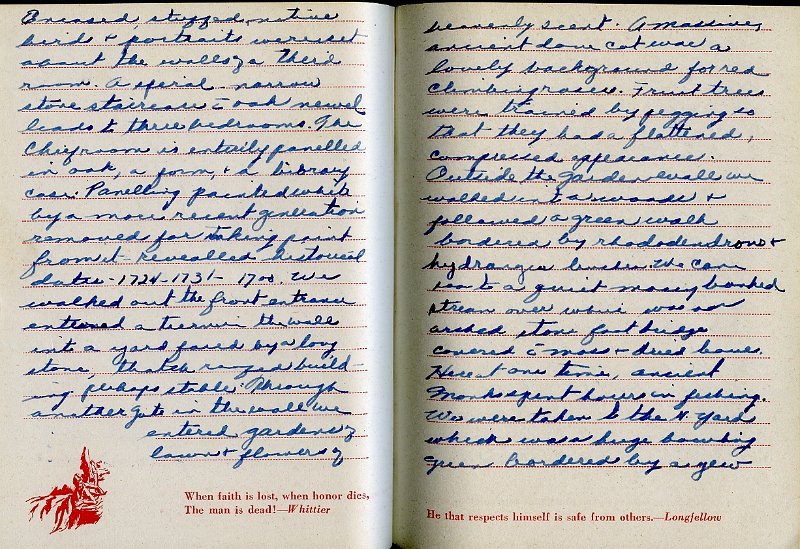 Encased stuffed native
birds + portraits were set
about the walls of a third
room. A spiral narrow
stone staircase c̄ oak newel
leads to three bedrooms. The
chief room is entirely panelled
in oak, a form, + a library
case. Panelling painted white
by a more recent generation
removed for taking paint
from it revealled historical
dates - 1724 - 1731 - 1700. We
walked out the front entrance
entered a in the wall
into a yard faced by a long
stone, thatch roofed build-
ing perhaps stable. Through
another gate in the wall we
entered gardens of
lawn + flowers of
When faith is lost, when honor dies,
The man is dead!—Whittier
heavenly scent. A massive,
ancient dove cot was a
lovely background for red
climbing roses. Fruit trees
were trained by pegging so
that they had a flattened,
compressed appearance.
Outside the garden wall we
walked into a woods +
followed a green walk
bordered by rhododendrons +
hydrangea bushes. We came
to a quiet mossy banked
stream over which was an
arched stone foot bridge
covered c̄ moss + dried
Here at one time, ancient
Monks spent hours in fishing.
We were taken to the N. Yard
which was a huge bowling
green bordered by a yew
He that respects himself is safe from others.—Longfellow